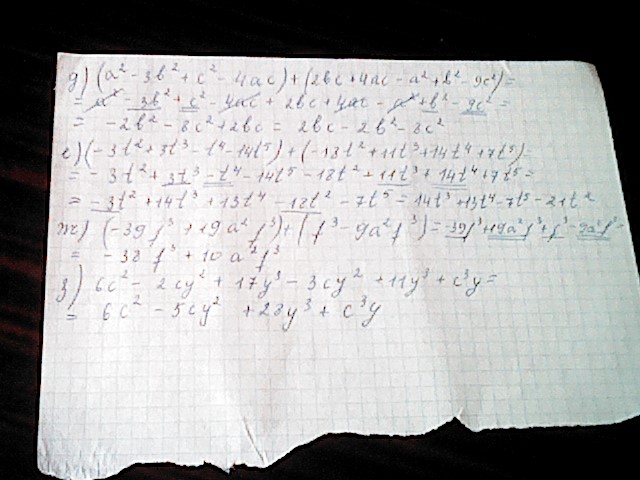 д) (a² - 3b² + c² - 4ac) + (2bc + 4ac - a² + b² - 9c²) =
= a² - 3b² + c² - 4ac + 2bc + 4ac - a² + b² - 9c² =
= -2b² - 8c² + 2bc = 2bc - 2b² - 8c²
е) (-3t² + 3t³ - t⁴ - 14t⁵) + (-18t² + 11t³ + 14t⁴ + 7t⁵) =
= -3t² + 3t³ - t⁴ - 14t⁵ - 18t² + 11t³ + 14t⁴ + 7t⁵ =
= -3t² + 14t³ + 13t⁴ - 18t² - 7t⁵ = 14t³ + 13t⁴ - 7t⁵ - 21t²
ж) (-39f³ + 19a²f³) + (f³ - 9a²f³) = -39f³ + 19a²f³ + f³ - 9a²f³ =
= -38f³ + 10a²f³
з) 6c² - 2cy² + 17y³ - 3cy² + 11y³ + c³y =
= 6c² - 5cy² + 28y³ + c³y